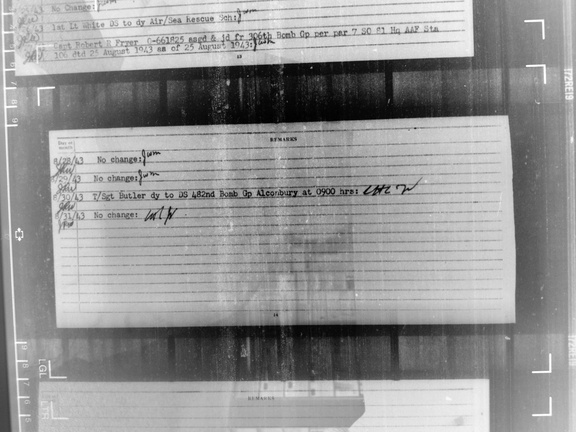 No Change:
1st Lt White DS to dy Air/Sea Rescue Sch:
Capt Robert R Fryer O-661825 asgd & jd fr 306th Bomb Gp per par 7 SO 81 Hq AAF Sta
106 dtd 25 August 1943 as of 25 August 1943:
13
REMARKS
8/28/43 No change:
8/29/43 No change:
8/30/43 T/Sgt Butler dy to DS 482nd Bomb Gp Alconbury at 0900 hrs:
8/31/43 No change:
14
REMARKS